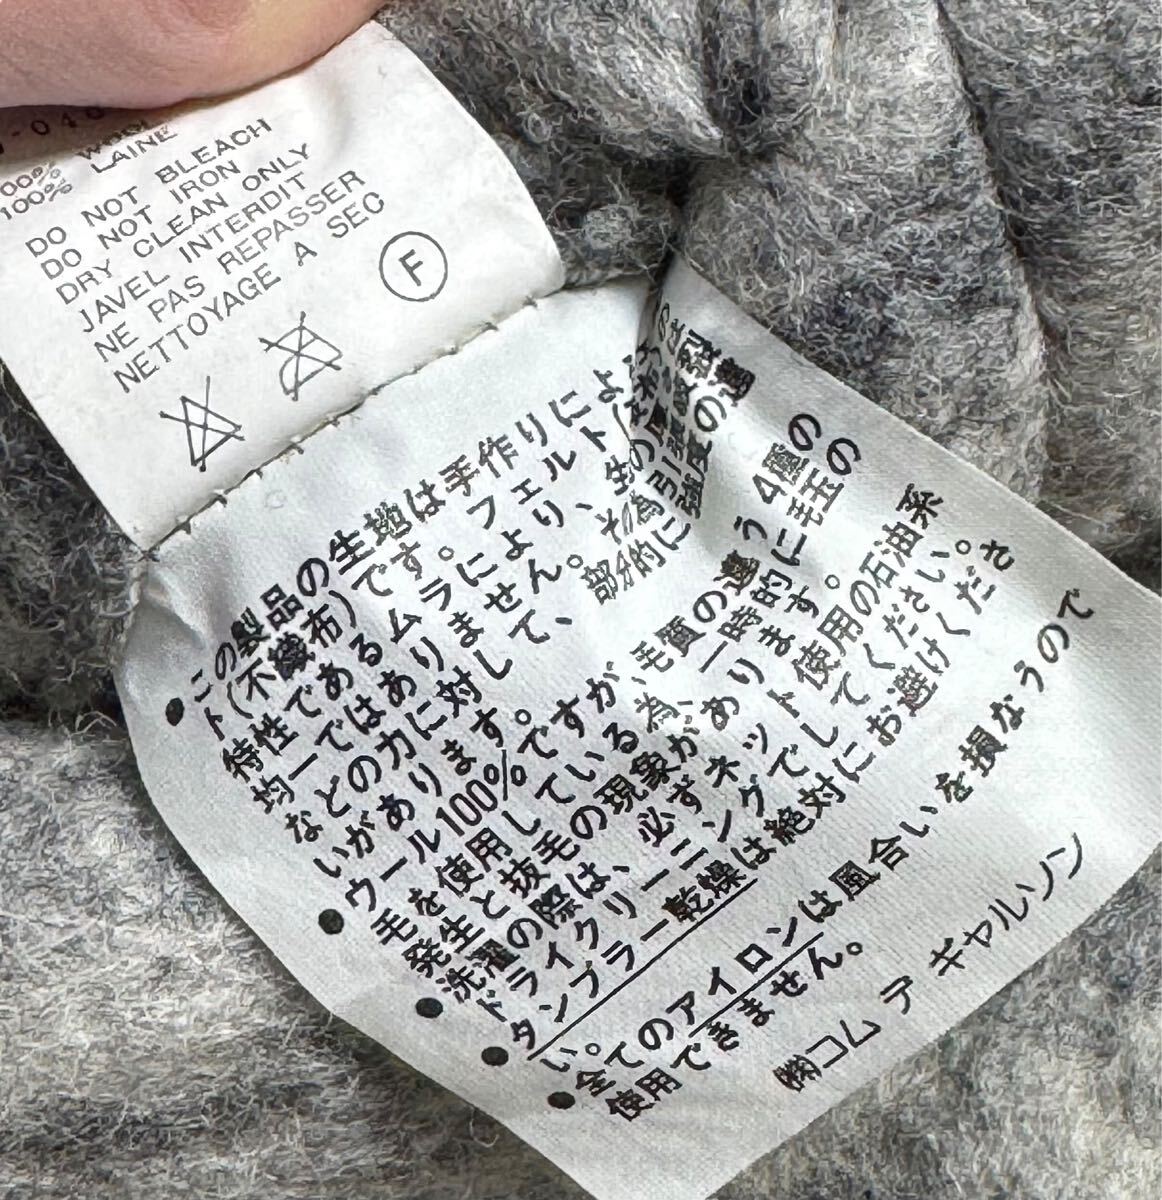 -040
100% WOOL
100% LAINE
DO NOT BLEACH
DO NOT IRON
DRY CLEAN ONLY
JAVEL INTERDIT
NE PAS REPASSER
NETTOYAGE A SEC
F
●この製品の生地は手作りによ
ト(不織布)です。フェルト
特性であるムラにより、生の厚
均一ではありません。その為引裂
などの力に対して、部分的に強度の違
いがあります。
●ウール100%ですが、毛質の違う4種の
毛を使用している為、一時的に毛玉の
発生と抜毛の現象があります。
●洗濯の際は、必ずネット使用の石油系
ドライクリーニングでしてください。
●タンブラー乾燥は絶対にお避けくださ
い。
●全てのアイロンは風合いを損なうので
使用できません。
㈱コム デ ギャルソン